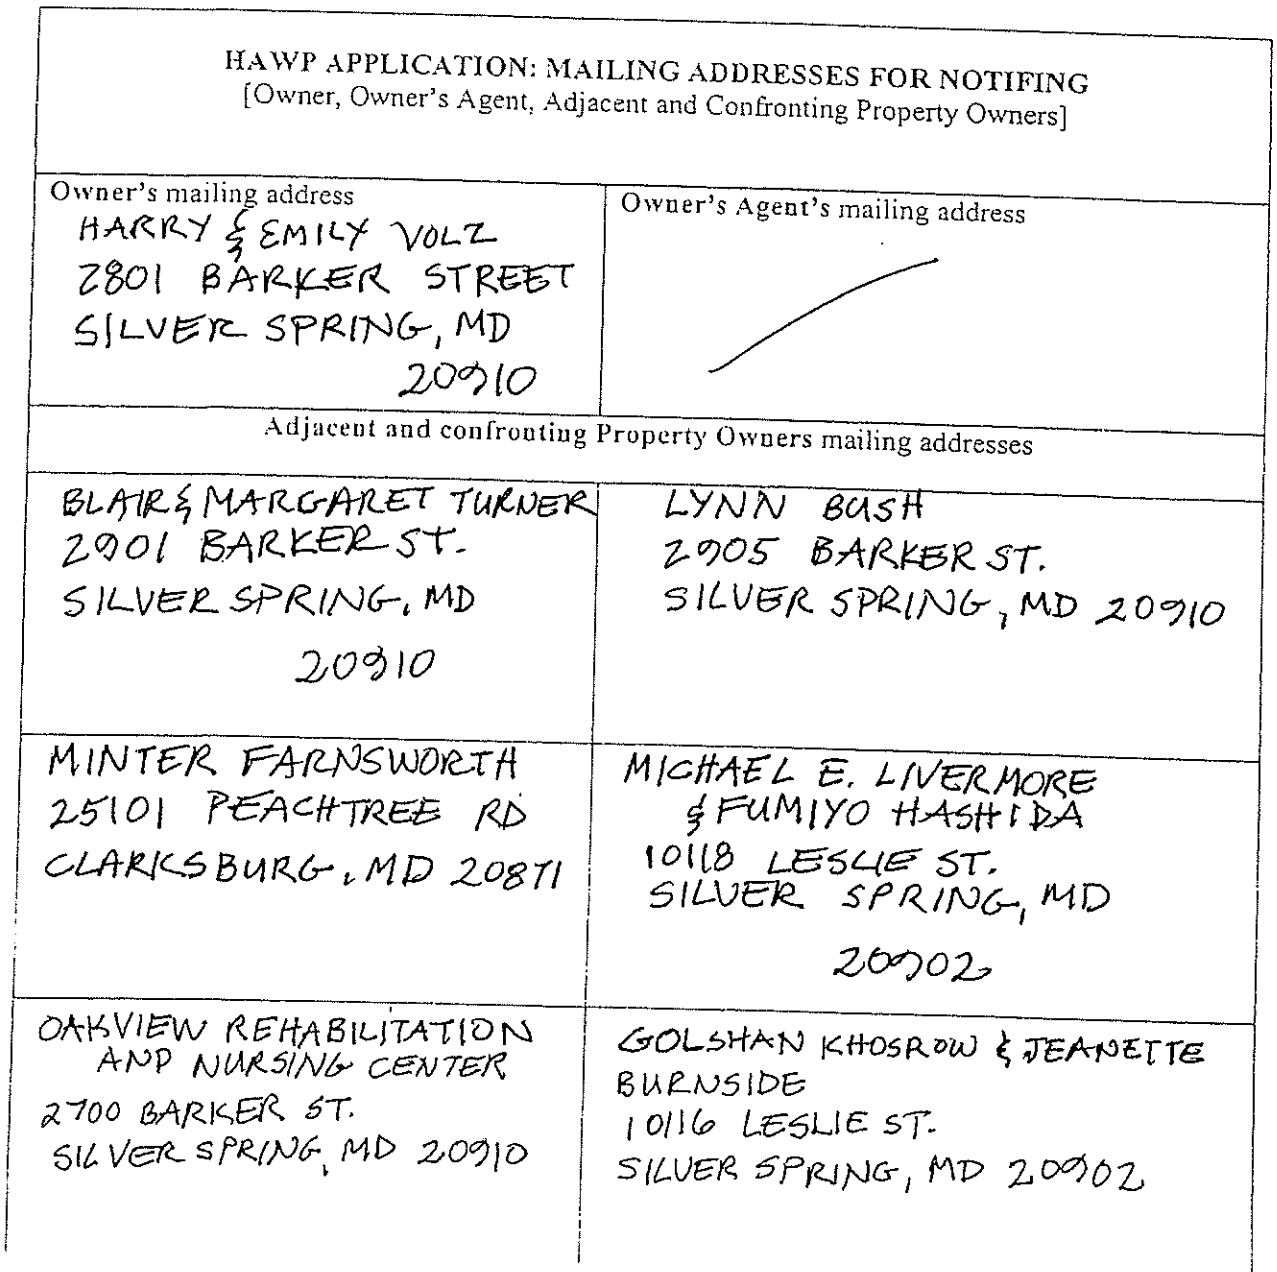 HAWP APPLICATION: MAILING ADDRESSES FOR NOTIFING
[Owner, Owner's Agent, Adjacent and Confronting Property Owners]
Owner's mailing address
HARRY & EMILY VOLZ
2801 BARKER STREET
SILVER SPRING, MD
20910
Owner's Agent's mailing address
Adjacent and confronting Property Owners mailing addresses
BLAIR & MARGARET TURNER
2901 BARKER ST.
SILVER SPRING, MD
20910
LYNN BUSH
2905 BARKER ST.
SILVER SPRING, MD 20910
MINTER FARNSWORTH
25101 PEACHTREE RD
CLARKSBURG, MD 20871
MICHAEL E. LIVERMORE
& FUMIYO HASHIDA
10118 LESLIE ST.
SILVER SPRING, MD
20902
OAKVIEW REHABILITATION
AND NURSING CENTER
2700 BARKER ST.
SILVER SPRING, MD 20910
GOLSHAN KHOSROW & JEANETTE
BURNSIDE
10116 LESLIE ST.
SILVER SPRING, MD 20902